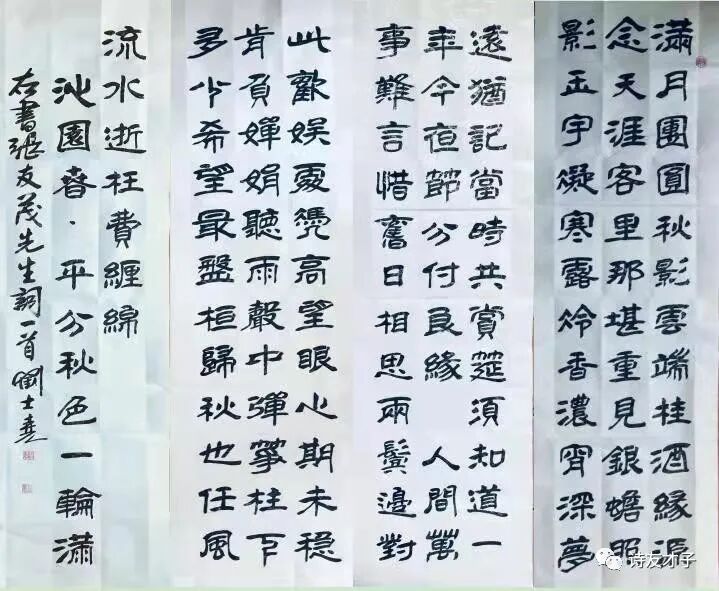 滿月團圓秋影雲端桂酒緣源
念天涯客里那堪重見銀蟾照
影玉宇凝寒露冷香濃宵深夢
遠猶記當時共賞筵須知道一
年今夜節分付良緣 人間萬
事難言惜舊日相思兩鬢邊對
此歡娱處凴高望眼心期未穩
肯負嬋娟聽雨聲中彈箏柱下
多少希望最盤桓歸秋也任風
流水逝枉費纏綿
沁園春·平分秋色一輪滿
右書張友茂先生詞一首 闞士堯
诗友才子